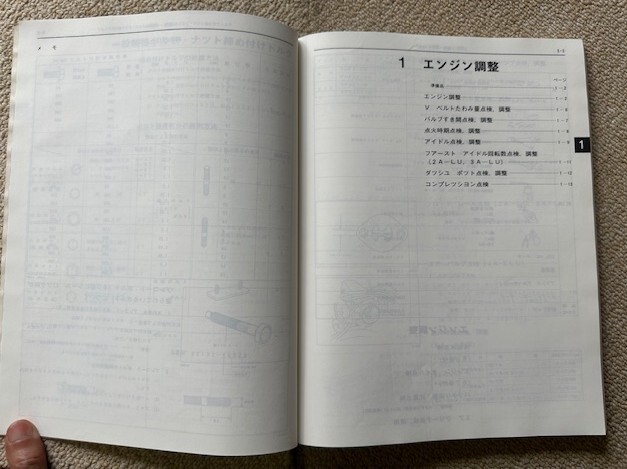 メ モ
1-1
1 エンジン調整
ページ
準備品 1-2
エンジン調整 1-3
V ベルトたわみ量点検、調整 1-6
バルブすき間点検、調整 1-7
点火時期点検、調整 1-8
アイドル点検、調整 1-9
フアースト アイドル回転数点検、調整
(2A-LU、3A-LU) 1-11
ダツシユ ポツト点検、調整 1-12
コンプレツシヨン点検 1-13
1